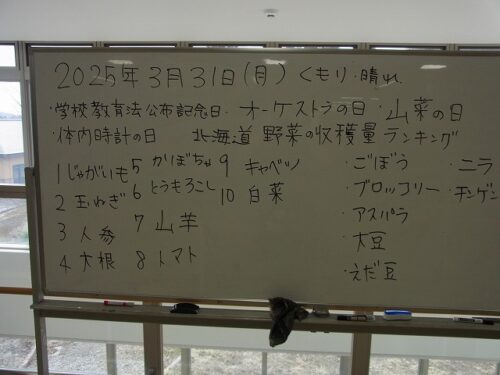 2025年3月31日(月) くもり・晴れ
・学校教育法公布記念日・オーケストラの日・山菜の日
・体内時計の日 北海道 野菜の収穫量 ランキング
1 じゃがいも 5 かぼちゃ 9 キャベツ ・ごぼう ・ニラ
2 玉ねぎ 6 とうもろこし 10 白菜 ・ブロッコリー ・チンゲン
3 人参 7 山羊 ・アスパラ
4 大根 8 トマト ・大豆
・えだ豆